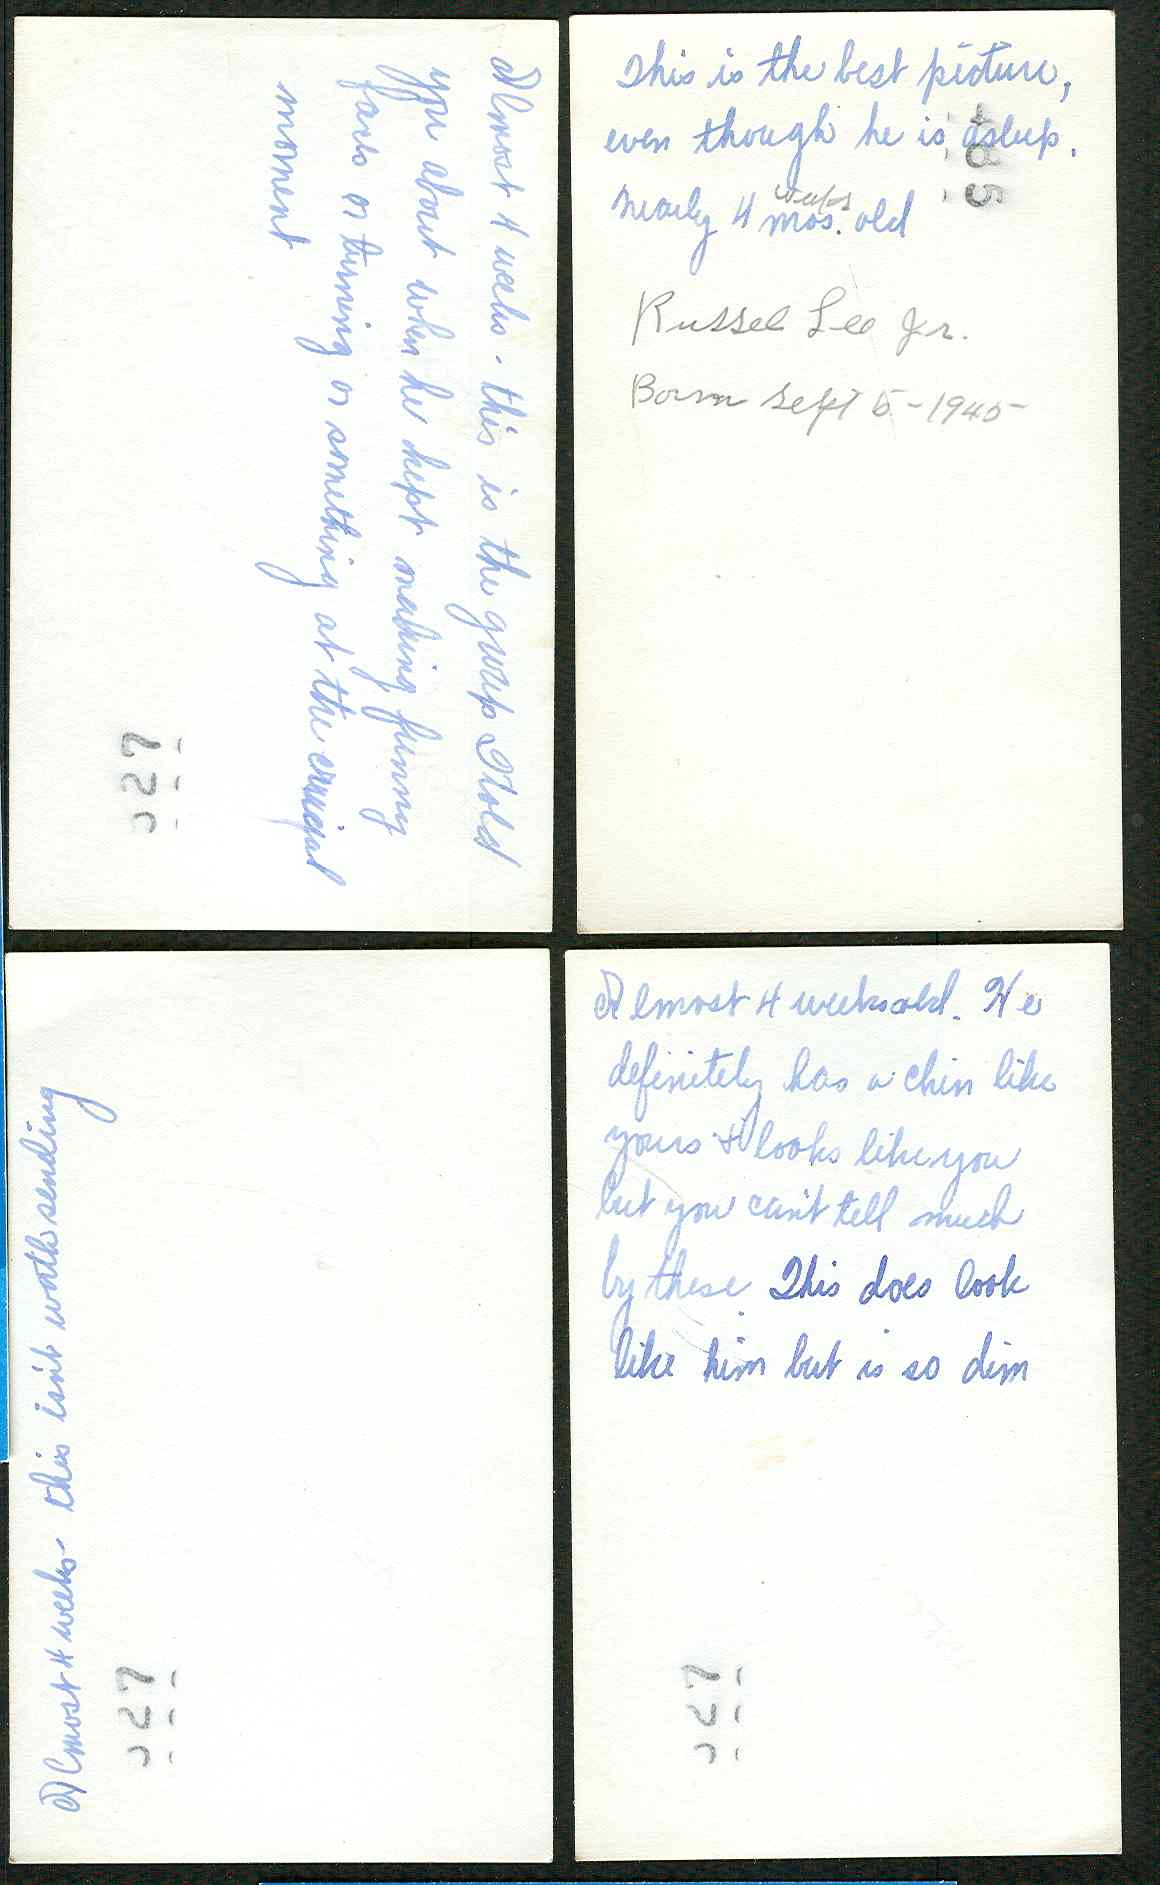 Almost 4 weeks - this is the group I told
you about when he kept making funny
faces or turning or something at the crucial
moment
527
This is the best picture,
even though he is asleep.
weeks
Nearly 4 mos. old
Russel Lee Jr.
Born Sept 5 - 1945
Almost 4 weeks - this isn't worth sending
527
Almost 4 weeks old. He
definitely has a chin like
yours & looks like you
but you can't tell much
by these. This does look
like him but is so dim
527